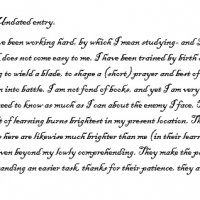 Undated entry.
've been working hard, by which I mean studying- and I
does not come easy to me. I have been trained by birth a
g to wield a blade, to shape a (short) prayer and best of
n into battle. I am not fond of books, and yet I am very
eed to know as much as I can about the enemy I face. T
t of learning burns brightest in my present location. Th
o here are likewise much brighter than me (in their learn
ven beyond my lowly comprehending. They make the pa
anding an easier task, thanks for their patience, they a